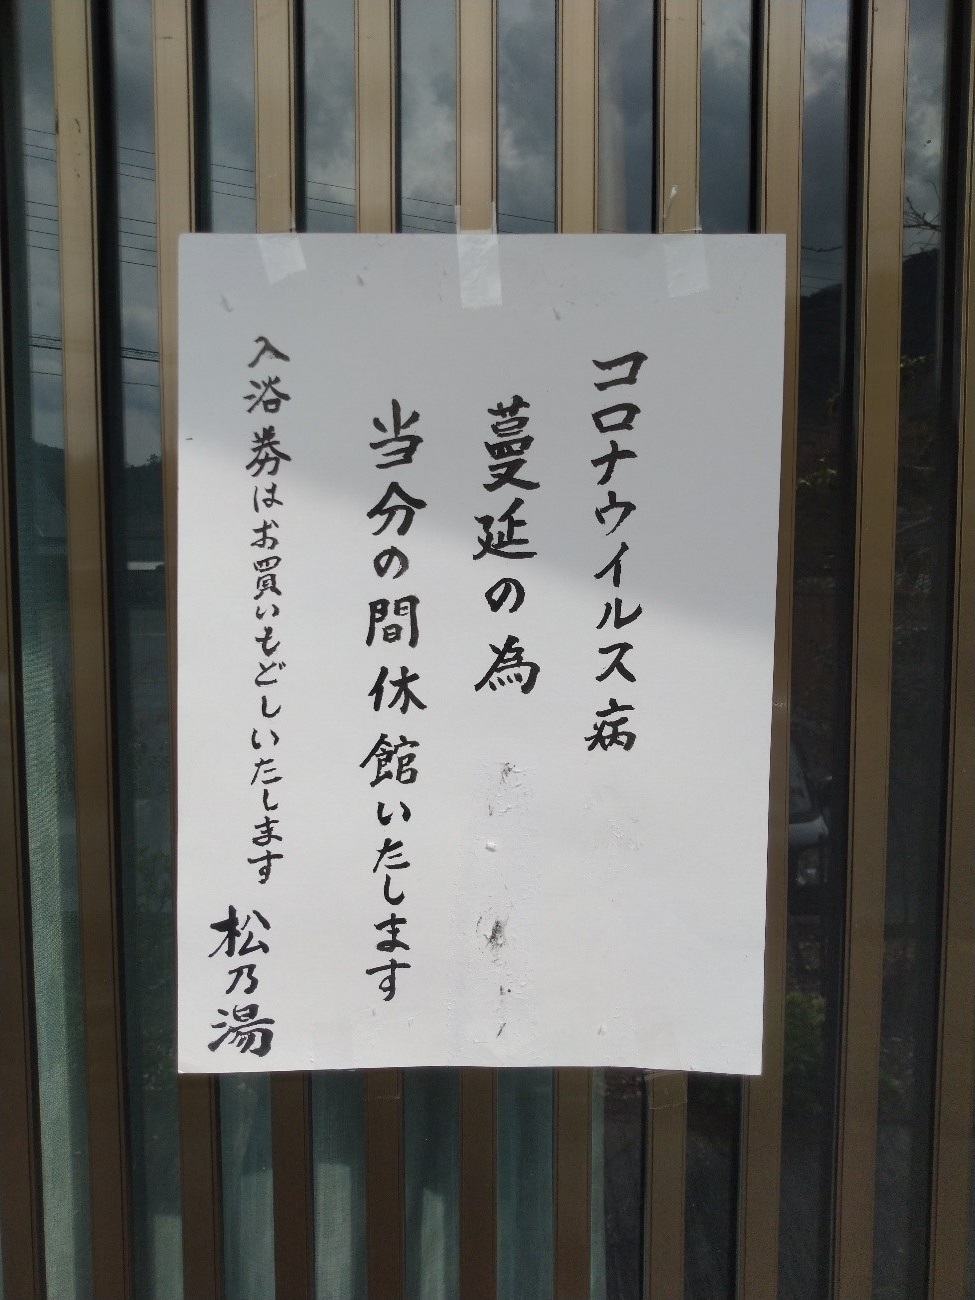 コロナウイルス病
蔓延の為
当分の間休館いたします
入浴券はお買いもどしいたします
松乃湯